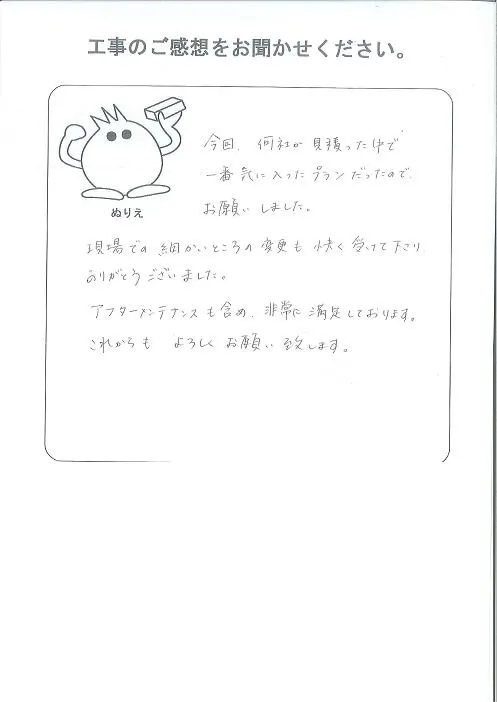 工事のご感想をお聞かせください。
ぬりえ
今回、何社か見積った中で
一番気に入ったプランだったので、
お願いしました。
現場での細かいところの変更も快く受けて下さり
ありがとうございました。
アフターメンテナンスも含め、非常に満足しております。
これからも よろしくお願い致します。